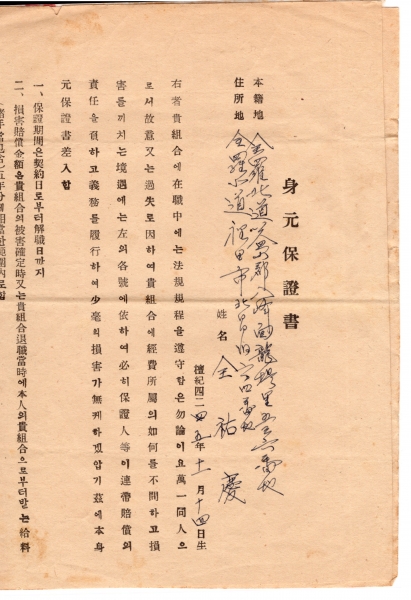 身元保證書
本籍地 全羅北道 郡 面龍 里五 六番地
住所地 全羅北道裡里市北 四番地
姓名 全祐慶
檀紀四二四五年十一月十四日生
右者貴組合에在職中에는法規規程을遵守함은勿論이요萬一同人으
로서故意又는過失로因하여貴組合에經費所屬의如何를不問하고損
害를끼치는境遇에는左의各號에依하여必히保證人等이連帶賠償의
責任을負하고義務를履行하여少毫의損害가無케하겠압기茲에本身
元保證書差入함
一、保證期間은契約日로부터解職日까지
二、損害賠償金額은貴組合의被害確定時又는貴組合退職當時에本人의貴組合으로부터받는給料